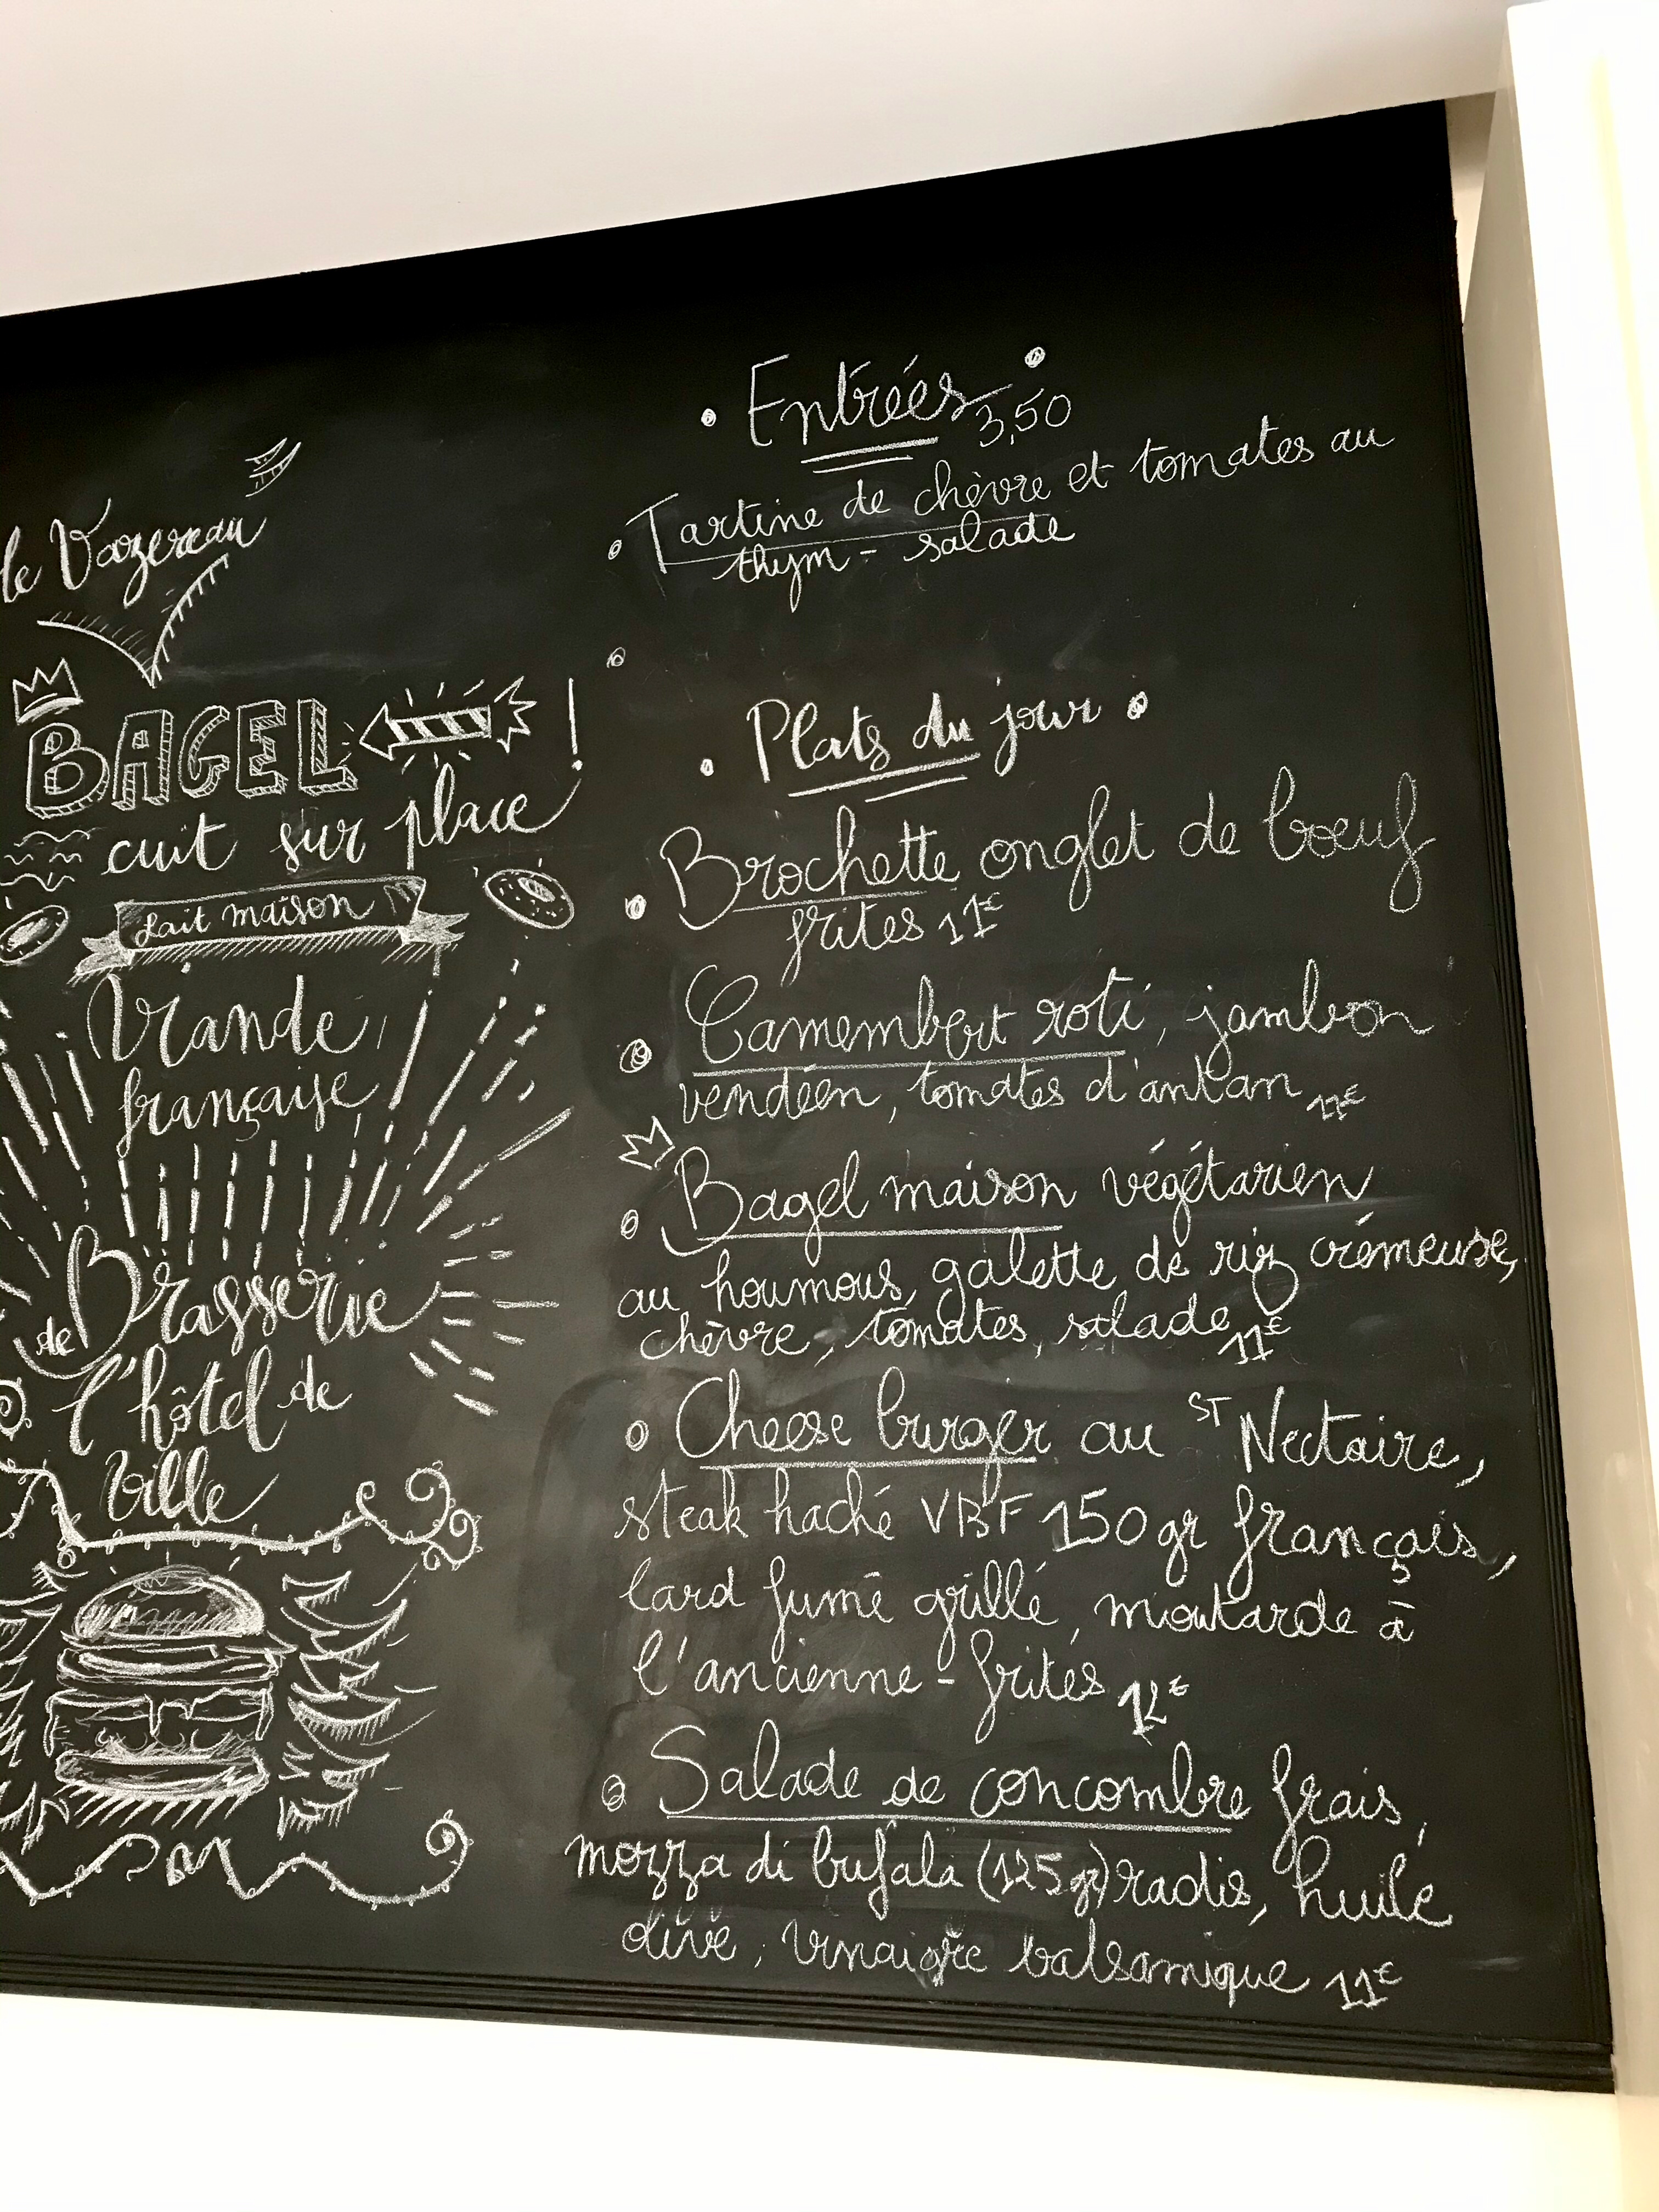 le Vazereau
BAGEL !
cuit sur place
fait maison
Viande
française
Brasserie
de
l'hôtel de
Ville
• Entrées •
3,50
Tartine de chèvre et tomates au
thym - salade
• Plats du jour •
Brochette onglet de boeuf
frites 11€
Camembert roti, jambon
vendéen, tomates d'antan 11€
Bagel maison végétarien
au houmous, galette de riz crémeuse,
chèvre, tomates, salade 11€
Cheese burger au ST Nectaire,
steak haché VBF 150gr français,
lard fumé grillé, moutarde à
l'ancienne - frites 12€
Salade de concombre frais,
mozza di bufala (125gr) radis, huile
olive, vinaigre balsamique 11€